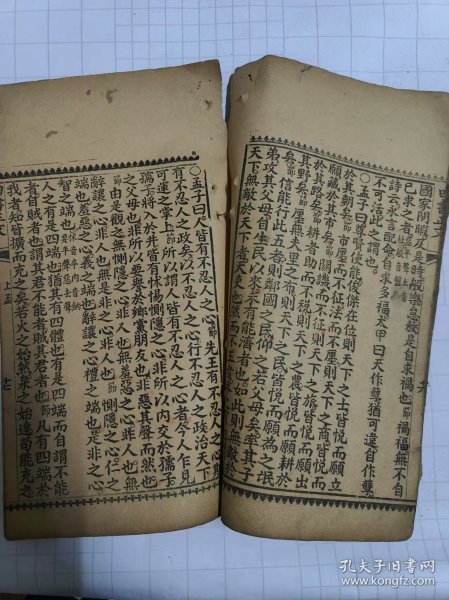 國家閒暇及是時般樂怠敖是自求禍也節禍福無不自
己求之者
詩云永言配命自求多福太甲曰天作孽猶可違自作孽
不可活此之謂也
○孟子曰尊賢使能俊傑在位則天下之士皆悅而願立
於其朝矣節市廛而不征法而不廛則天下之商皆悅而
願藏於其市矣節關譏而不征則天下之旅皆悅而願出
於其路矣節耕者助而不稅則天下之農皆悅而願耕於
其野矣節廛無夫里之布則天下之民皆悅而願為之氓
矣節信能行此五者則鄰國之民仰之若父母矣率其子
弟攻其父母自生民以來未有能濟者也如此則無敵於
天下無敵於天下者天吏也然而不王者未之有也
○孟子曰人皆有不忍人之心節先王有不忍人之心斯
有不忍人之政矣以不忍人之心行不忍人之政治天下
可運之掌上節所以謂人皆有不忍人之心者今人乍見
孺子將入於井皆有怵惕惻隱之心非所以內交於孺子
之父母也非所以要譽於鄉黨朋友也非惡其聲而然也
節由是觀之無惻隱之心非人也無羞惡之心非人也無
辭讓之心非人也無是非之心非人也節惻隱之心仁之
端也羞惡之心義之端也辭讓之心禮之端也是非之心
智之端也
人之有是四端也猶其有四體也有是四端而自謂不能
者自賊者也謂其君不能者賊其君者也節凡有四端於
我者知皆擴而充之矣若火之始然泉之始達苟能充之
上孟
孔夫子旧书网
www.kongfz.com